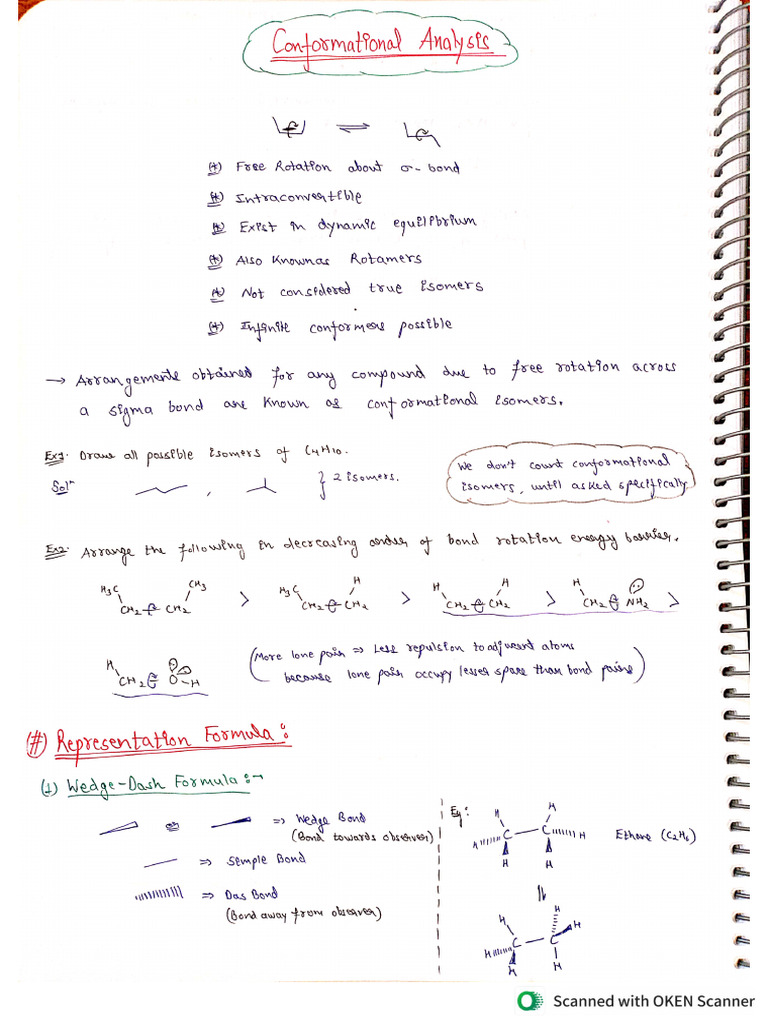 Conformational Analysis
⇌
(*) Free Rotation about σ-bond
(*) Intraconvertible
(*) Exist in dynamic equilibrium
(*) Also Known as Rotamers
(*) Not considered true isomers
(*) Infinite conformers possible
→ Arrangements obtained for any compound due to free rotation across
a sigma bond are known as conformational isomers.
Ex1. Draw all possible isomers of C4H10.
Solⁿ , } 2 isomers.
We don't count conformational
isomers, until asked specifically
Ex2. Arrange the following in decreasing order of bond rotation energy barrier.
H3C CH3 H3C H H H H
CH2 CH2 > CH2 CH2 > CH2 CH2 > CH2 NH2 >
H
CH2 O-H
(More lone pair ⇒ Less repulsion to adjuent atoms
because lone pair occupy lesser space than bond pairs)
(#) Representation Formula:
(1) Wedge-Dash Formula:-
⇒ Wedge Bond
(Bond towards observer)
⇒ Semple Bond
⇒ Das Bond
(Bond away from observer)
Eg:
H H
H C C H Ethane (C2H6)
H H
⇌
H H
C C H
H
H H
Scanned with OKEN Scanner